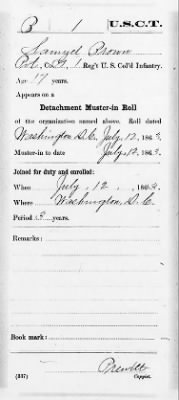 B | 1 | U.S.C.T.
Samuel Brown
Pvt., Co. , 1 Reg't U. S. Col'd Infantry.
Age 17 years.
Appears on a
Detachment Muster-in Roll
of the organization named above. Roll dated
Washington D.C. July 12, 1863.
Muster-in to date July 12, 1863.
Joined for duty and enrolled:
When July 12, 1863.
Where Washington, D.C.
Period 3 years.
Remarks:
Book mark:
(357) Copyist.